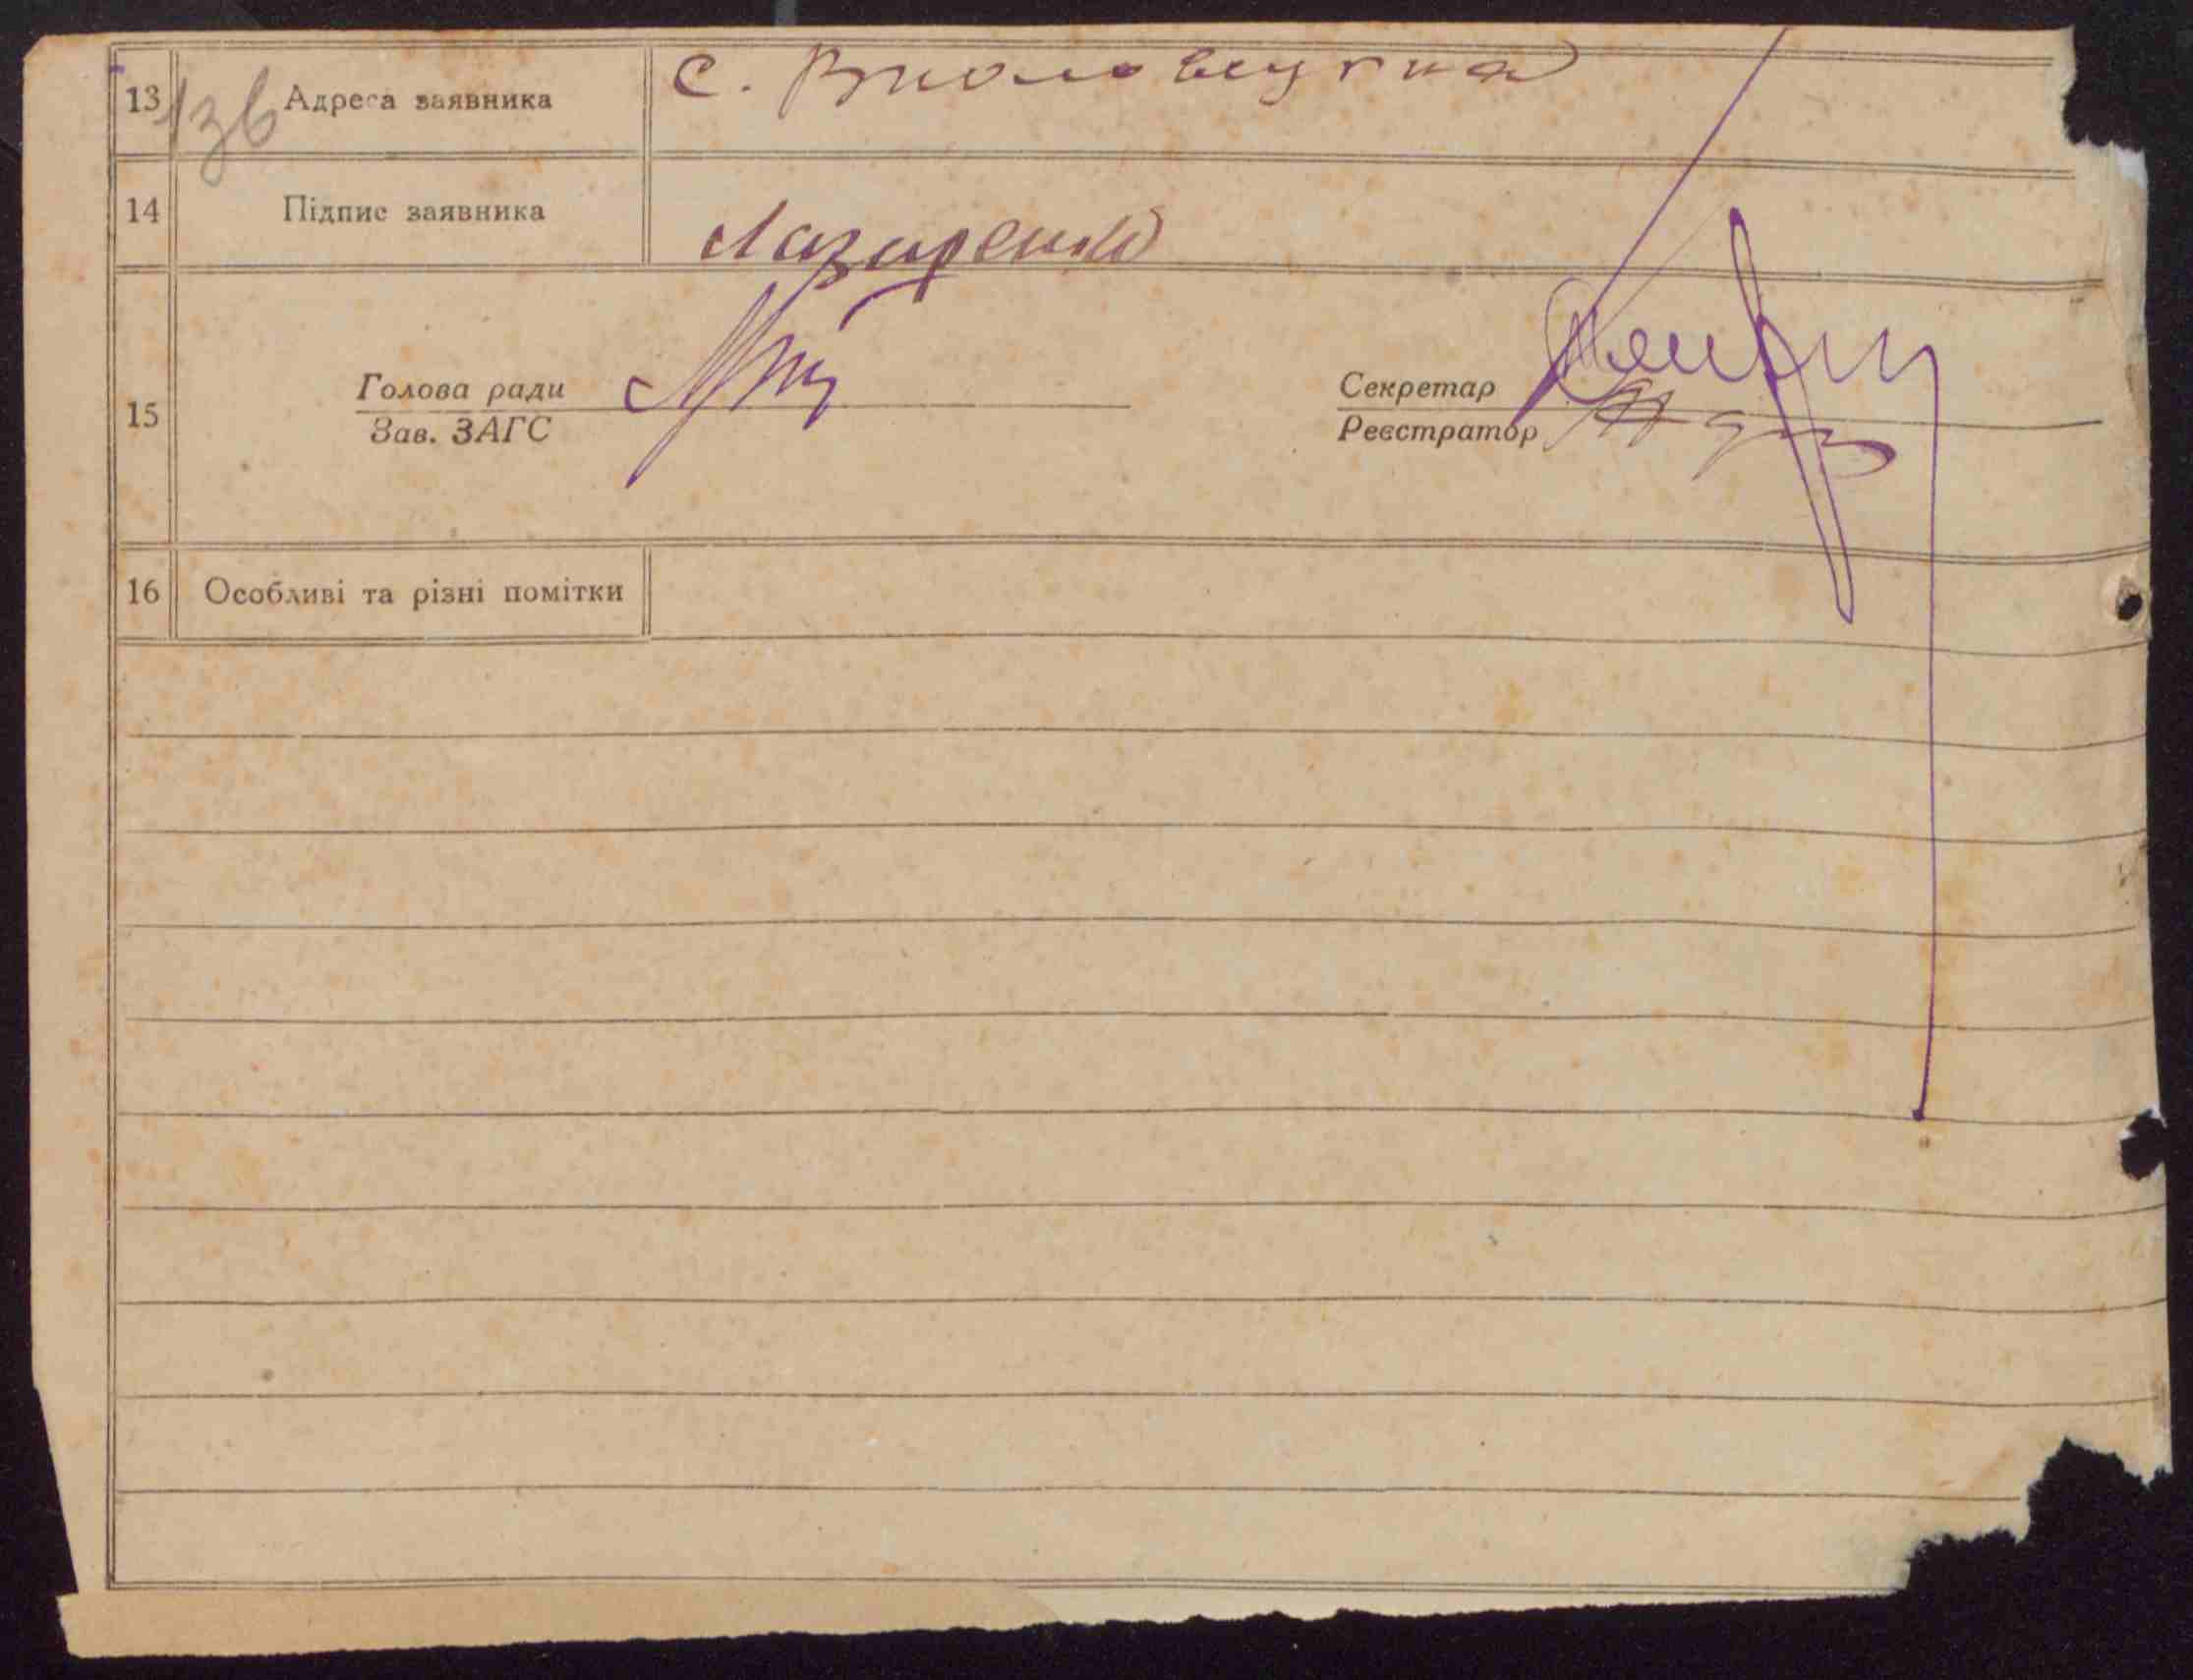 13 Адреса заявника с.
136
14 Підпис заявника Лазаренко
15 Голова ради Секретар
Зав. ЗАГС Реєстратор
16 Особливі та різні помітки